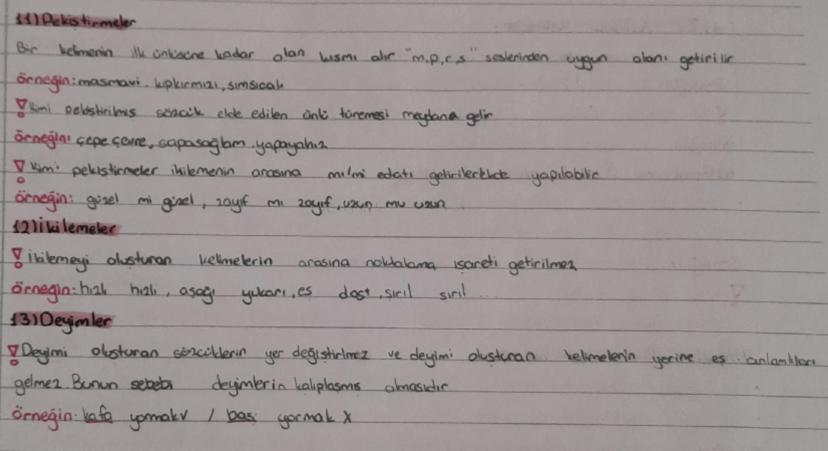 11) Pekiştirmeler
Bir kelimenin ilk ünlüsüne kadar olan kısmı alır "m,p,r,s" seslerinden uygun olanı getirilir
örneğin: masmavi, kıpkırmızı, sımsıcak
Kimi pekiştirilmiş sözcük elde edilen ünlü türemesi meydana gelir
örneğin: çepeçevre, sapasağlam, yapayalnız
Kimi pekiştirmeler ikilemenin arasına mı/mi edatı getirilerekte yapılabilir
örneğin: güzel mi güzel, zayıf mı zayıf, uzun mu uzun
12) İkilemeler
ikilemeyi oluşturan kelimelerin arasına noktalama işareti getirilmez
örneğin: hızlı hızlı, aşağı yukarı, eş dost, şırıl şırıl
13) Deyimler
Deyimi oluşturan sözcüklerin yer değiştirilmez ve deyimi oluşturan kelimelerin yerine eş anlamlıları
gelmez. Bunun sebebi deyimlerin kalıplaşmış olmasıdır
örneğin: kafa yormak ✓ / baş yormak X